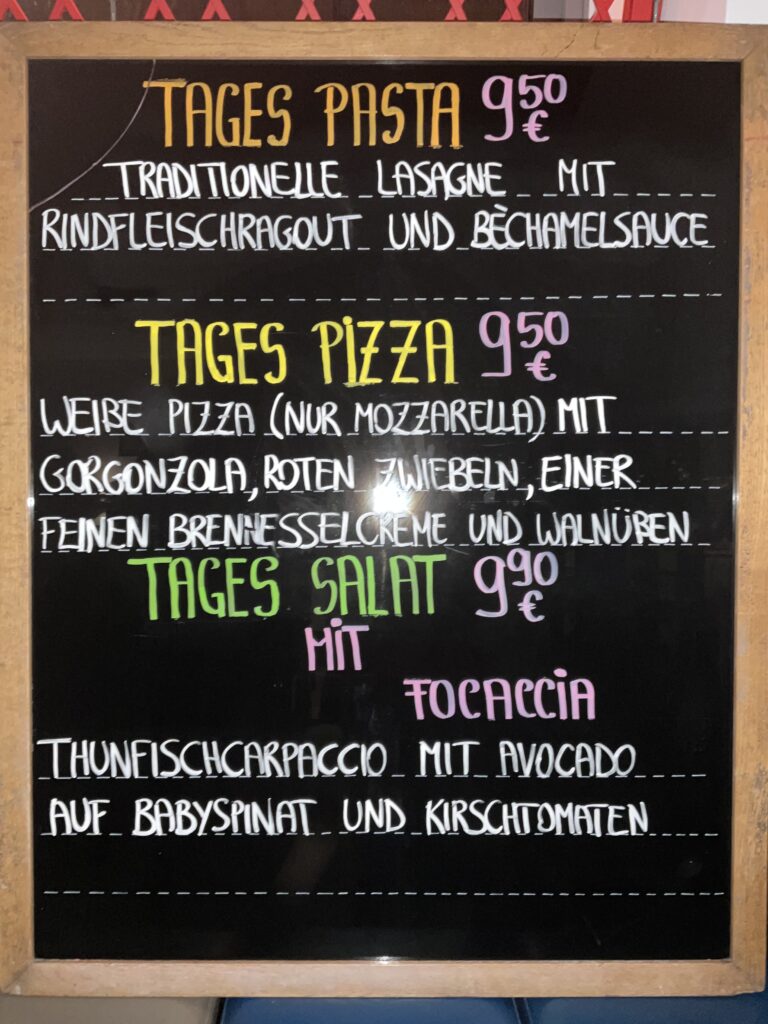 TAGES PASTA 9 50 €
TRADITIONELLE LASAGNE MIT
RINDFLEISCHRAGOUT UND BÈCHAMELSAUCE
TAGES PIZZA 9 50 €
WEIßE PIZZA (NUR MOZZARELLA) MIT
GORGONZOLA, ROTEN ZWIEBELN, EINER
FEINEN BRENNESSELCREME UND WALNÜßEN
TAGES SALAT 9 90 €
MIT
FOCACCIA
THUNFISCHCARPACCIO MIT AVOCADO
AUF BABYSPINAT UND KIRSCHTOMATEN